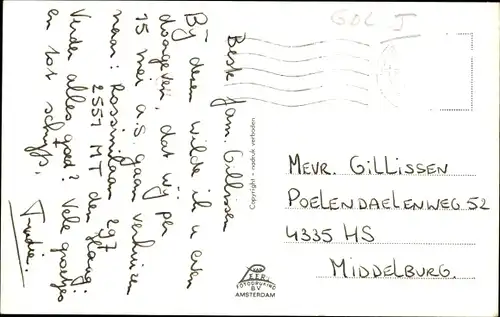 Beste fam. Gillissen
Bij dezen wilde ik u even
doorgeven, dat wij per
15 mei a.s. gaan verhuizen
naar: Rossinilaan 297
2551 MT den Haag.
Verder alles goed? Vele groetjes
en tot schrijfs,
Trudie.
GOL I
Copyright - nadruk verboden
MEVR. GILLISSEN
POELENDAELENWEG 52
4335 HS
MIDDELBURG.
VAN
EER
FOTODRUKIND
B.V
AMSTERDAM